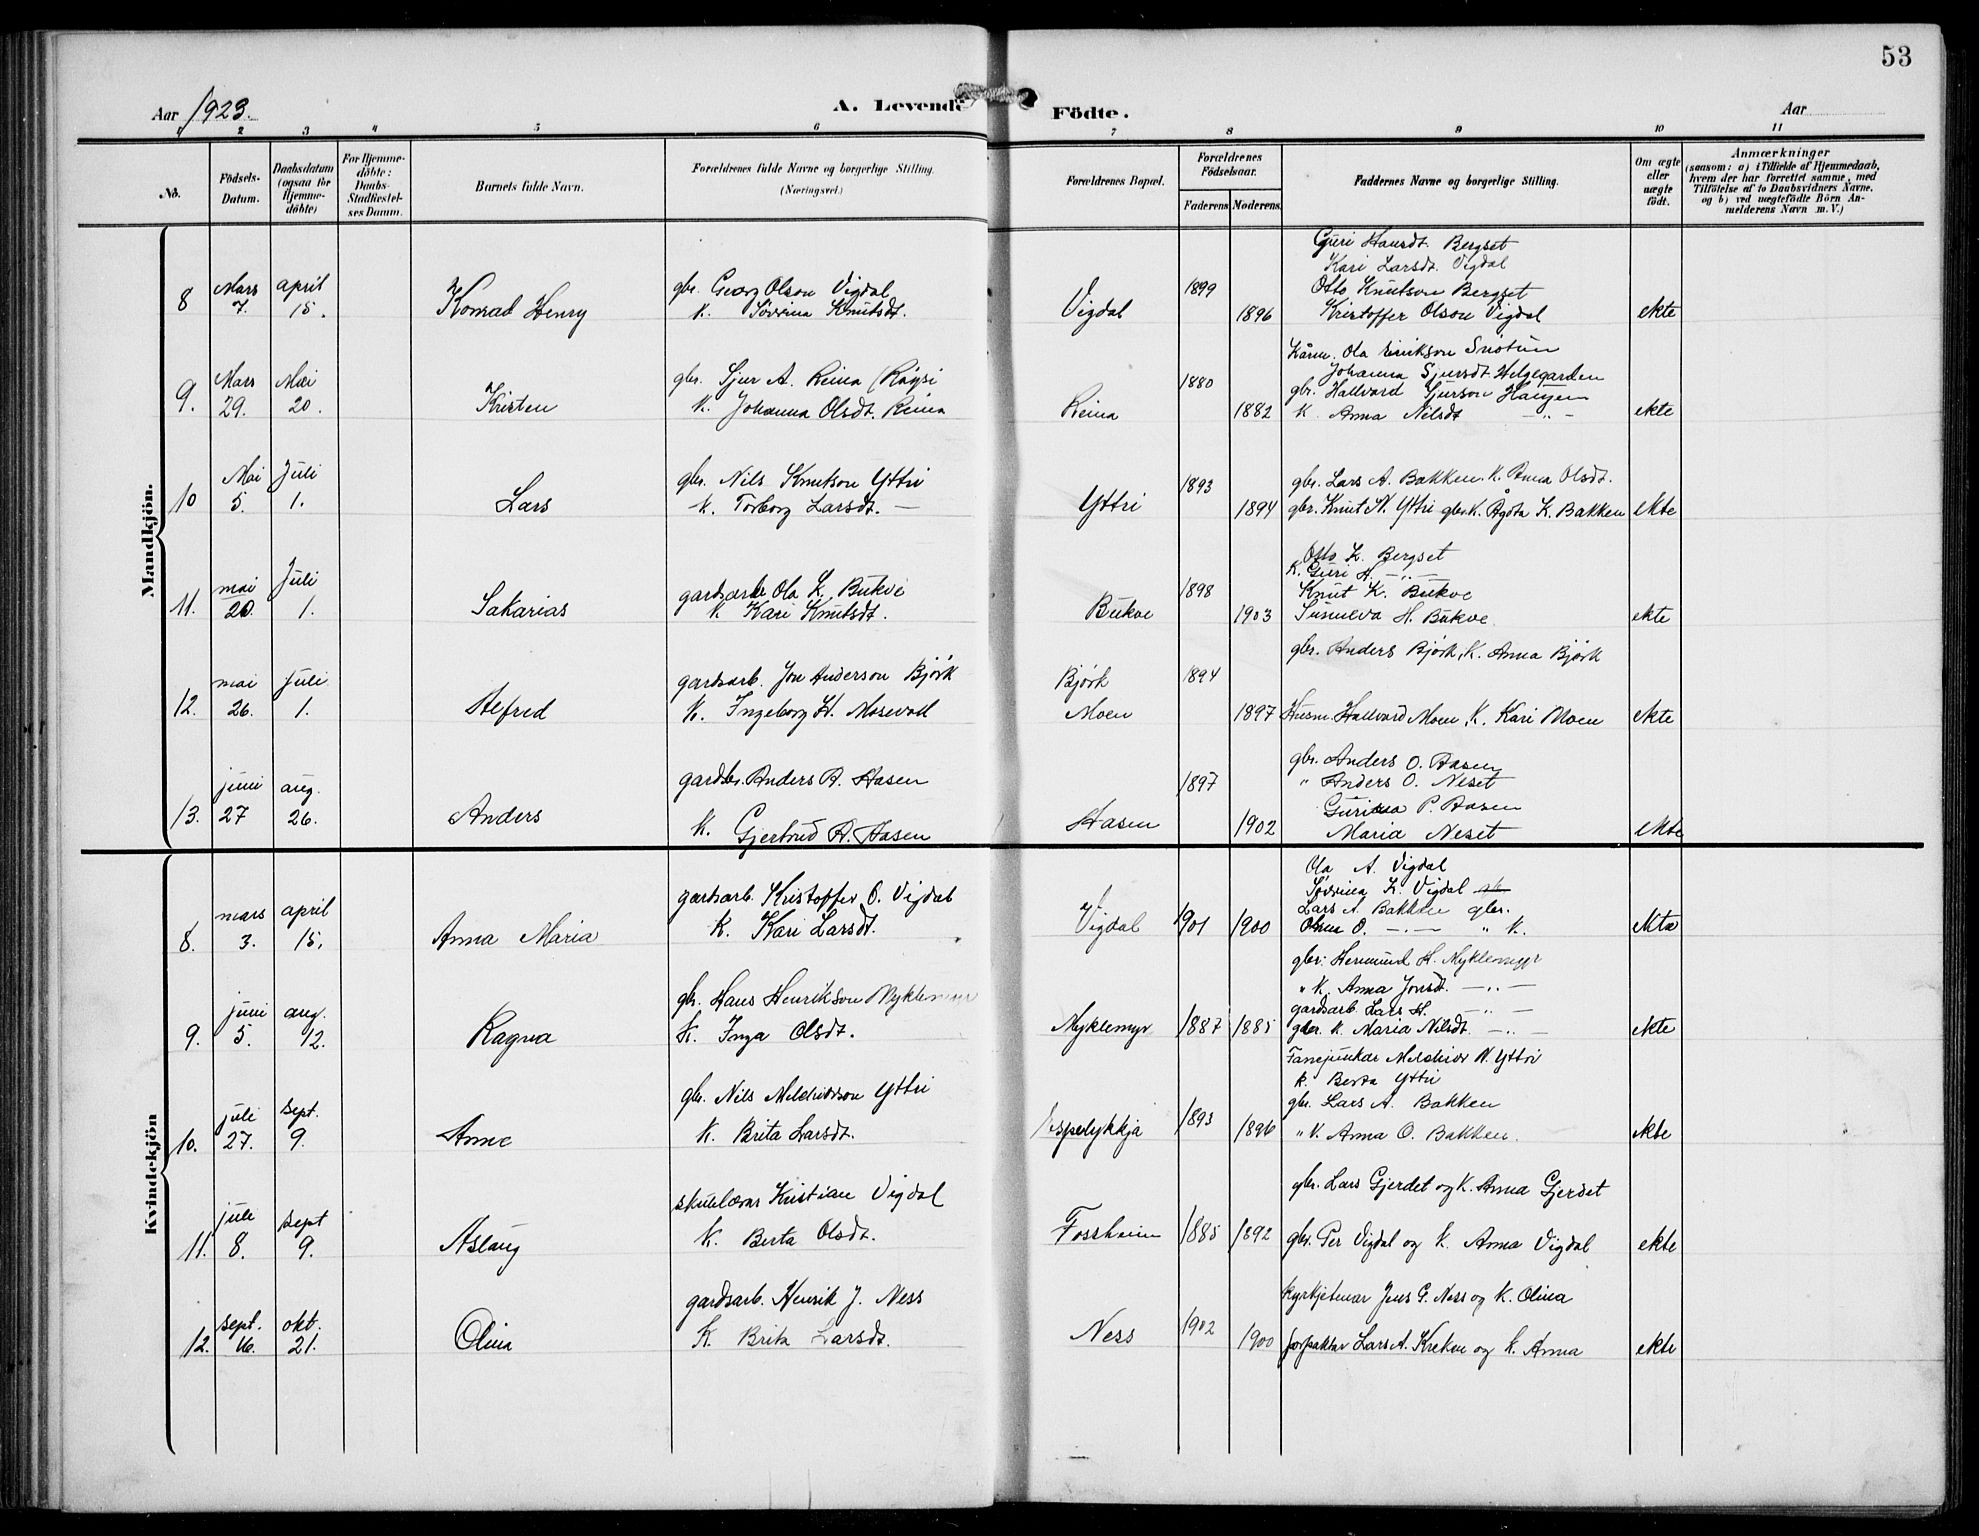 53
Aar 1923.
A. Levende Födte.
Aar
1 2 3 4 5 6 7 8 9 10 11
No.
Födsels-Datum.
Daabsdatum (ogsaa for Hjemme-döbte)
For Hjemme-döbte: Daabs-Stadfæstel-ses Datum.
Barnets fulde Navn.
Forældrenes fulde Navne og borgerlige Stilling. (Næringsvei.)
Forældrenes Bopæl.
Forældrenes Födselsaar.
Faderens Moderens
Faddernes Navne og borgerlige Stilling.
Om ægte eller uægte födt.
Anmærkninger
(saasom: a) i Tilfælde af Hjemmedaab, hvem der har forrettet samme, med Tilföielse af to Daabsvidners Navne, og b) ved uægtefödte Börn Anmelderens Navn m. V.)
Mandkjön.
8 Mars 7. april 15. Konrad Henry
gbr. Georg Olson Vigdal
K. Søverina Knutsdt.
Vigdal 1899 1896
Guri Hansdt. Bergset
Kari Larsdt. Vigdal
Otto Knutson Bergset
Kristoffer Olson Vigdal
ekte
9. Mars 29. Mai 20. Kristen
gbr. Sjur A. Reina (Røysi
K. Johanna Olsdt. Reina
Reina 1880 1882
Ola Eirikson
Johanna Sjursdt. Helgegarden
gbr. Hallvard Sjurson Haugen
K. Anna Nilsdt — " —
ekte
10 Mai 5. Juli 1. Lars
gbr. Nils Knutson Yttri
K. Torborg Larsdt. —
Yttri 1893 1894
gbr. Lars A. Bakken. K. Anna Olsdt.
gbr. Knut N. Yttri gbr.K. Ågota K. Bakken
ekte
11. mai 20. Juli 1. Sakarias
gardsarb Ola L. Bukve
K Kari Knutsdt.
Bukve 1898 1903
Otto K. Bergset
K. Guri H. — " —
Knut K. Bukve
Sunneva H. Bukve
ekte
12. mai 26. juli 1. Alfred
gardsarb. Jon Anderson Bjørk
K. Ingeborg H. Mosevoll
Bjørk
Moen 1894 1897
gbr. Anders Bjørk, K. Anna Bjørk
Husm. Hallvard Moen, K. Kari Moen
ekte
13. juni 27 aug. 26. Anders
gardbr. Anders A. Aasen
K. Gjertrud A. Aasen
Aasen 1897 1902
gbr. Anders O. Aasen
" Anders O. Neset
P. Aasen
Maria Neset
ekte
Kvindekjön
8. mars 3. april 15. Anna Maria
gardsarb. Kristoffer O. Vigdal
K. Kari Larsdt.
Vigdal 1901 1900
Ola A. Vigdal
Søverina K. Vigdal
Lars A. Bakken gbr.
O. — " — " K.
ekte
9. juni 5. aug. 12. Ragna
gbr. Hans Henrikson Myklemyr
K. Inga Olsdt.
Myklemyr 1887 1885
gbr. Hermund H. Myklemyr
" K. Anna Jonsdt. — " —
gardsarb. Lars H. — " —
gbr. K. Maria Nilsdt. — " —
ekte
10. juli 27. sept. 9. Anne
gbr. Nils Melchiorson Yttri
K. Brita Larsdt.
Espelykkja 1893 1896
Fanejunkar Melchior N. Yttri
K. Berta Yttri
gbr. Lars A. Bakken
" K. Anna O. Bakken.
ekte
11. juli 8. sept 9. Aslaug
skulelærar Kristian Vigdal
K. Berta Olsdt.
Fossheim 1885 1892
gbr. Lars Gjerdet og K. Anna Gjerdet
gbr. Per Vigdal og K. Anna Vigdal
ekte
12. sept. 16. okt. 21. Olina
gardsarb. Henrik J. Ness
K Brita Larsdt.
Ness 1902 1900
Kyrkjetenar Jens G. Ness og K. Olina
forpaktar Lars A. Krekve og K. Anna
ekte